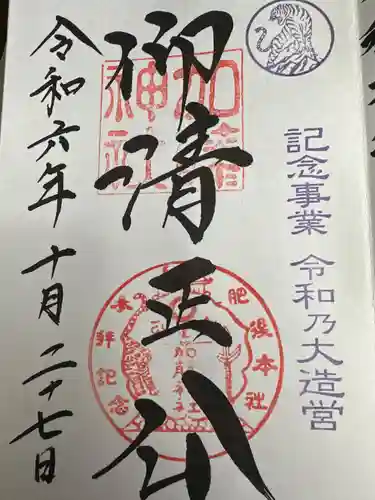 記念事業 令和乃大造営
加藤神社
御清正公
肥後本社
参拝記念
令和六年 十月 二十七日